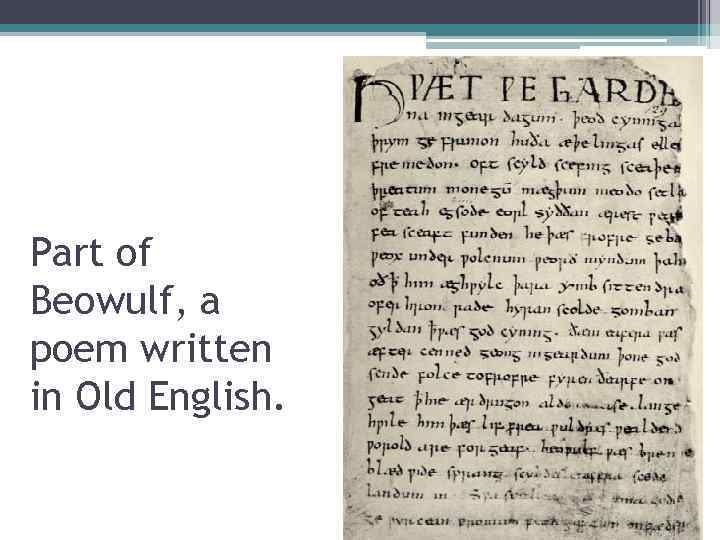 Part of
Beowulf, a
poem written
in Old English.
HǷÆT ǷE GARDE
na ingear dagum. þeod cyninga
þrym ge frunon huða æþelingas elle
fre medon. oft scyld scefing sceaþe
þreatum monegū mægþum meodo setla
of teah egsode eorl syððan ærest ƿea
fea sceaft funden he þæs frofre geba
ƿeox under ƿolcnum ƿeorð myndum þah
oð ꝥ him æghƿylc þara ymb sittendra
ofer hron rade hyran scolde gomban
gyldan ꝥ ƿæs god cyning. ðæm eafera ƿæs
æfter cenned geong ingeardum þone god
sende folce tofrofre fyren ðearfe on
geat ꝥ hie ær drugon aldor ase. lange
hƿile him þæs lif frea ƿuldres ƿealdend
ƿorold are for geaf. beoƿulf ƿæs
blæd ƿide sprang scyldes eafera scede
landum in
ge ƿyrcean fromum feoh giftum on